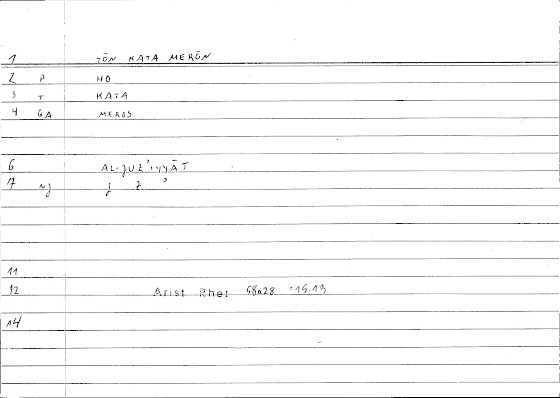 1 TŌN KATA MERŌN
2 P HO
3 T KATA
4 GA MEROS
6 AL-JUZ'IYYĀT
7 NJ j z '
11
12 Arist Rhet 58a28 :15.19
14